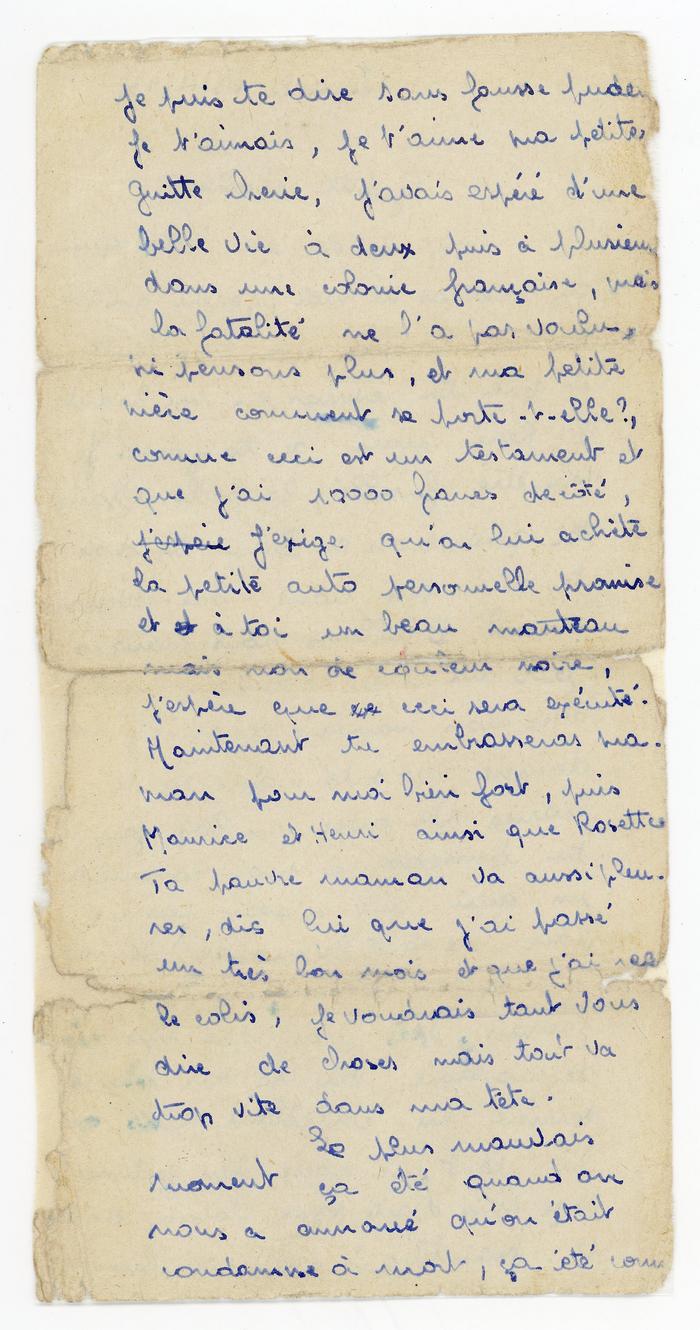 Je puis te dire sans fausse pudeu
Je t'aimais, Je t'aime ma petite
guitte cherie, j'avais espéré d'une
belle vie à deux puis à plusieurs
dans une colonie française, mais
la fatalité ne l'a pas voulu,
ni pensons plus, et ma petite
nièce comment se porte-t-elle?,
comme ceci est un testament et
que j'ai 10000 francs de côté,
j'espère J'exige qu'on lui achète
la petite auto personnelle promise
et et à toi un beau manteau
mais non de couleur noire,
j'espère que ceci sera exécuté.
Maintenant tu embrasseras ma-
man pour moi bien fort, puis
Maurice et Henri ainsi que Rosette
Ta pauvre maman va aussi pleu-
rer, dis lui que j'ai passé
un très bon mois et que j'ai
le colis, Je voudrais tant vous
dire de choses mais tout va
trop vite dans ma tête.
Le plus mauvais
moment ça été quand on
nous a annoncé qu'on était
condamné à mort, ça été com